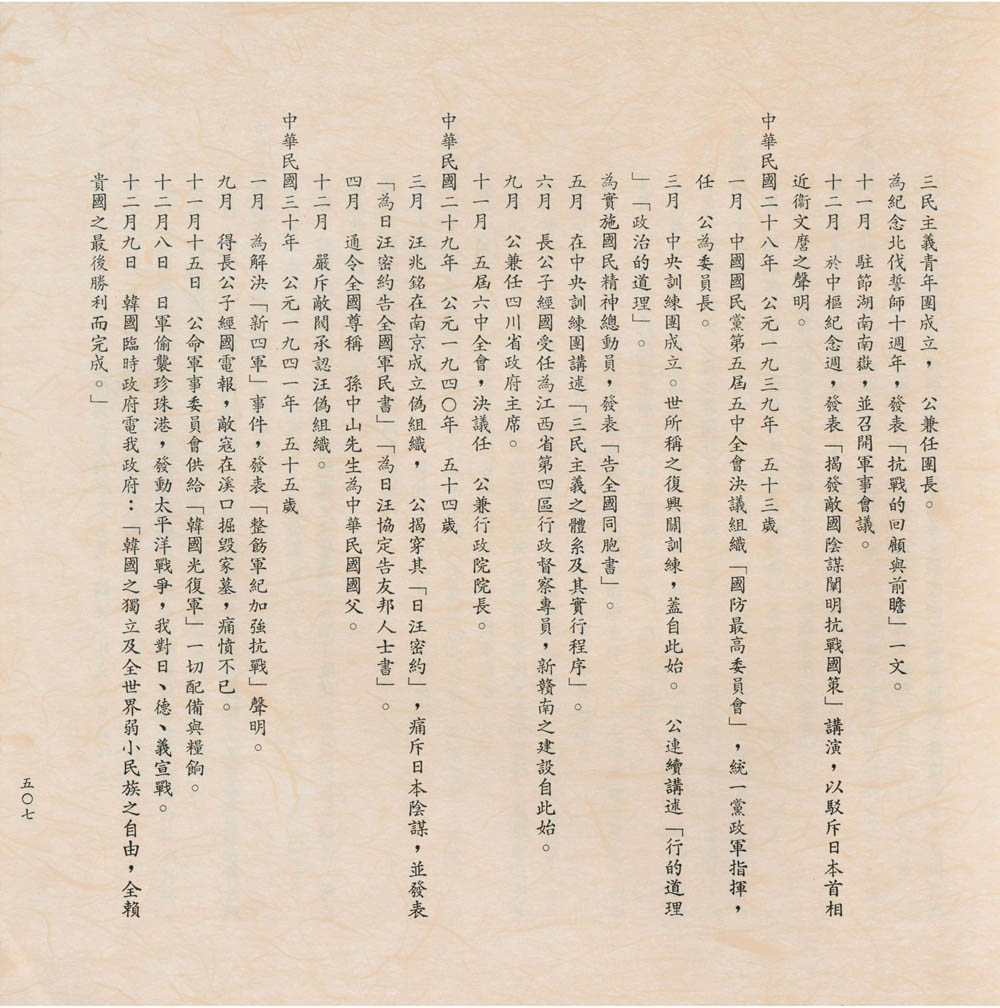 三民主義青年團成立，　公兼任團長。
為紀念北伐誓師十週年，發表「抗戰的回顧與前瞻」一文。
十一月　駐節湖南南嶽，並召開軍事會議。
十二月　於中樞紀念週，發表「揭發敵國陰謀闡明抗戰國策」講演，以駁斥日本首相
近衞文麿之聲明。
中華民國二十八年　公元一九三九年　五十三歲
一月　中國國民黨第五屆五中全會決議組織「國防最高委員會」，統一黨政軍指揮，
任　公為委員長。
三月　中央訓練團成立。世所稱之復興關訓練，蓋自此始。　公連續講述「行的道理
」「政治的道理」。
為實施國民精神總動員，發表「告全國同胞書」。
五月　在中央訓練團講述「三民主義之體系及其實行程序」。
六月　長公子經國受任為江西省第四區行政督察專員，新贛南之建設自此始。
九月　公兼任四川省政府主席。
十一月　五屆六中全會，決議任　公兼行政院院長。
中華民國二十九年　公元一九四〇年　五十四歲
三月　汪兆銘在南京成立偽組織，　公揭穿其「日汪密約」，痛斥日本陰謀，並發表
「為日汪密約告全國軍民書」「為日汪協定告友邦人士書」。
四月　通令全國尊稱　孫中山先生為中華民國國父。
十二月　嚴斥敵閥承認汪偽組織。
中華民國三十年　公元一九四一年　五十五歲
一月　為解決「新四軍」事件，發表「整飭軍紀加強抗戰」聲明。
九月　得長公子經國電報，敵寇在溪口掘毀家墓，痛憤不已。
十一月十五日　公命軍事委員會供給「韓國光復軍」一切配備與糧餉。
十二月八日　日軍偷襲珍珠港，發動太平洋戰爭，我對日、德、義宣戰。
十二月九日　韓國臨時政府電我政府：「韓國之獨立及全世界弱小民族之自由，全賴
貴國之最後勝利而完成。」
五〇七